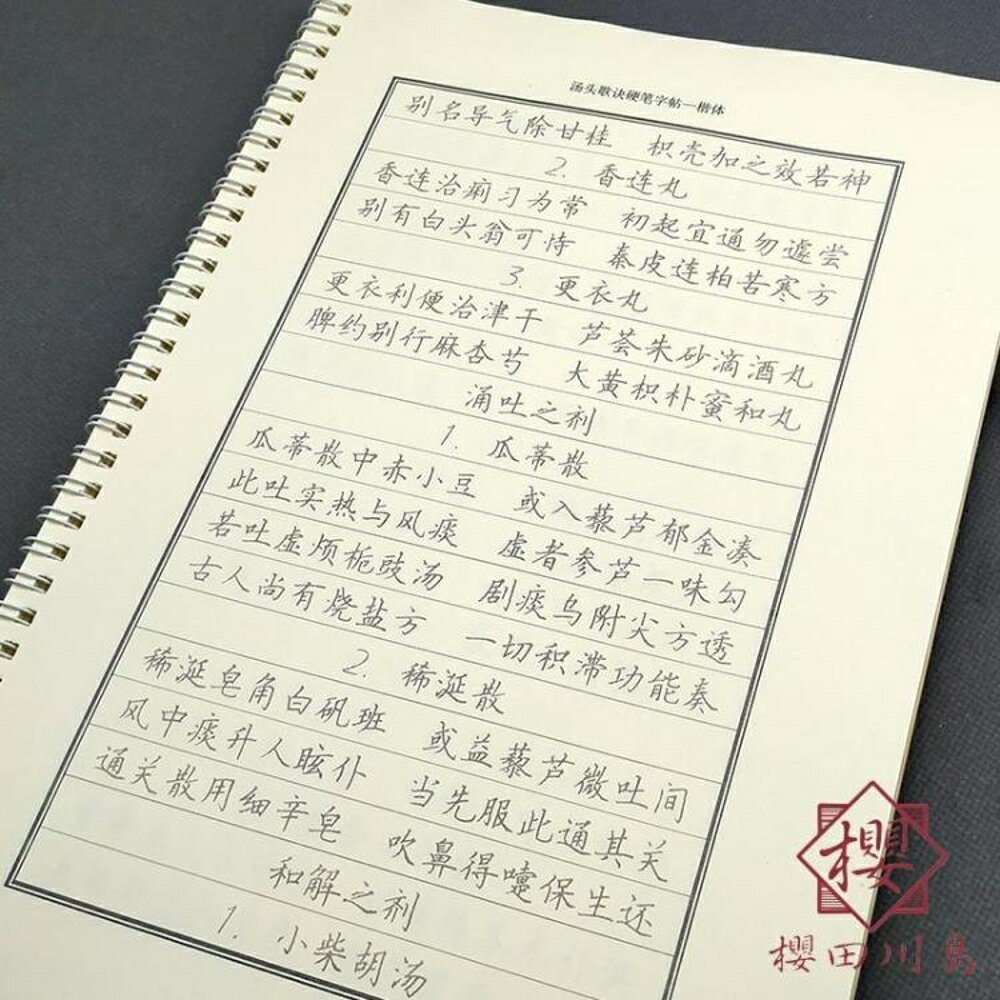 汤头歌诀硬笔字帖—楷体
别名导气除甘桂　枳壳加之效若神
2. 香连丸
香连治痢习为常　初起宜通勿遽尝
别有白头翁可恃　秦皮连柏苦寒方
3. 更衣丸
更衣利便治津干　芦荟朱砂滴酒丸
脾约别行麻杏芍　大黄枳朴蜜和丸
涌吐之剂
1. 瓜蒂散
瓜蒂散中赤小豆　或入藜芦郁金凑
此吐实热与风痰　虚者参芦一味勾
若吐虚烦栀豉汤　剧痰乌附尖方透
古人尚有烧盐方　一切积滞功能奏
2. 稀涎散
稀涎皂角白矾班　或益藜芦微吐间
风中痰升人眩仆　当先服此通其关
通关散用细辛皂　吹鼻得嚏保生还
和解之剂
1. 小柴胡汤
櫻
櫻田川島